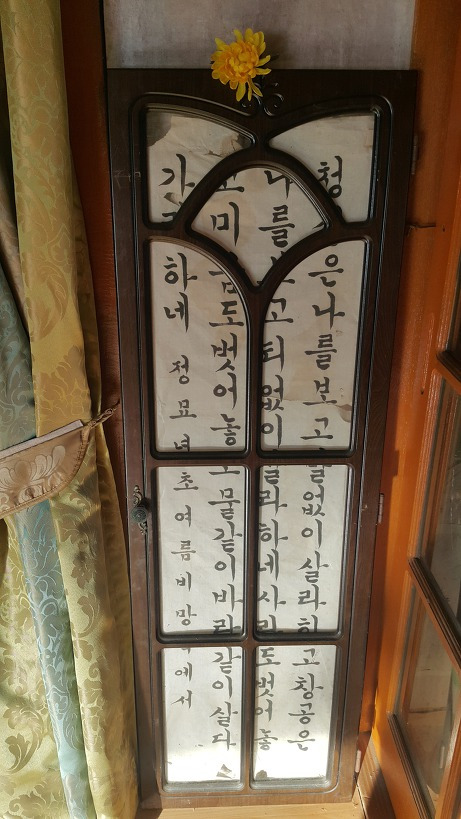 청산은 나를 보고 말없이 살라 하고 창공은
나를 보고 티 없이 살라 하네 사랑도 벗어 놓
고 미움도 벗어 놓고 물같이 바람같이 살다
가라 하네 정묘년 초여름 비망록에서